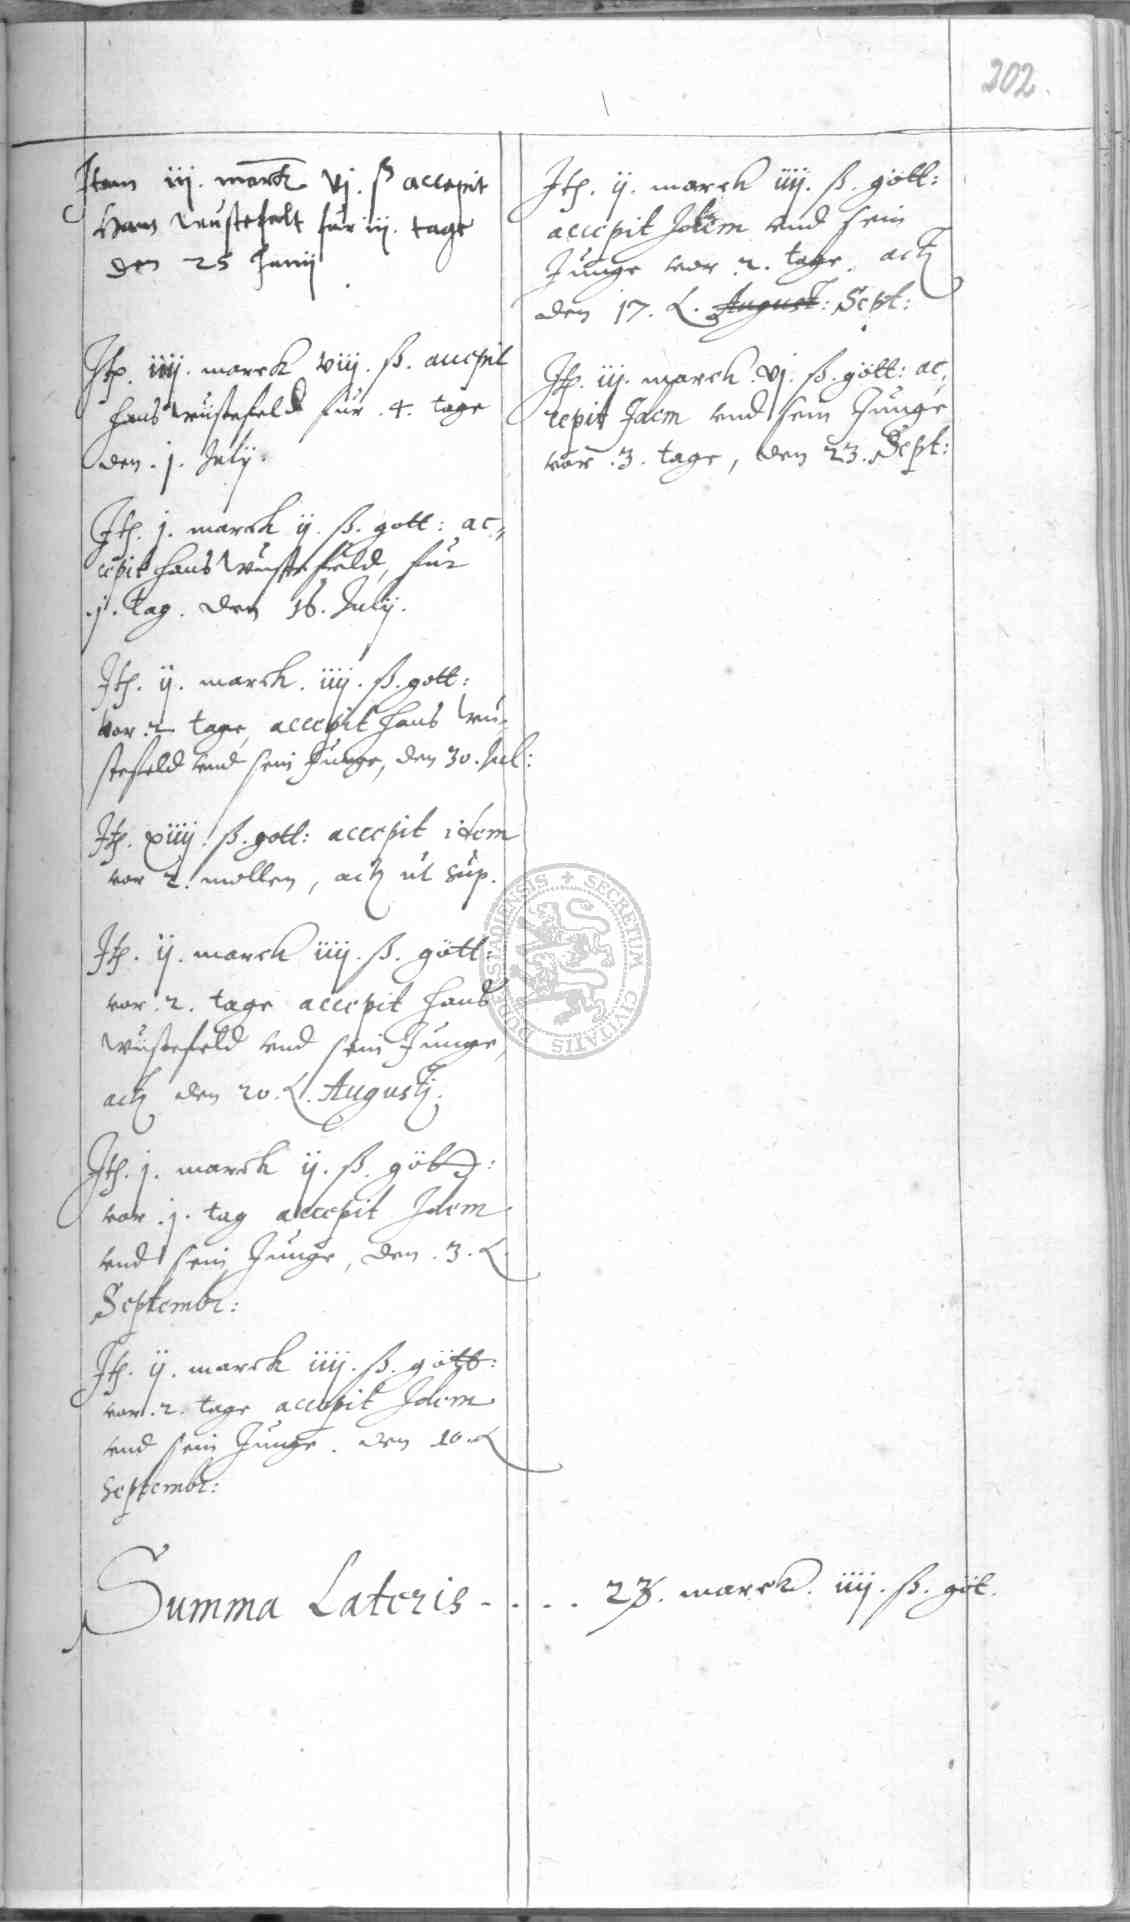 202.
Item iij. marck vj. ß accepit
Hans Wustefelt für iij. tage
den 25 Junij
Itp. iiij. marck viij. ß. accepit
Hans Wüstefeld für .4. tage
den .j. Julij.
Itp. j. marck ij. ß. gott: ac„
cepit Hans Wüstefeld, für
.j. tag. den 16. Julij.
Itp. ij. marck. iiij. ß. gott:
vor .2. tage, accepit Hans Wu-
stefeld vnd sein Junge, den 30. Jul:
Itp. xiiij. ß. gott: accepit idem
vor 2. mollen, act ut sup.
Itp. ij. marck iiij. ß. gött:
vor .2. tage accepit Hans
Wüstefeld vnd sein Junge,
act den 20. Augusti.
Itp. j. marck ij. ß. gött:
vor .j. tag accepit Idem
vnd sein Junge, den .3.
Septembr:
Itp. ij. marck iiij. ß. gött:
vor .2. tage accepit Idem
vnd sein Junge. den 10.
Septembr:
Itp. ij. marck iiij. ß. gött:
accepit Idem vnd sein
Junge vor .2. tage. act
den 17. August: Sept:
Itp. iij. marck. vj. ß. gött: ac,
cepit Idem vnd sein Junge
vor .3. tage, den 23. Sept:
Summa Lateris - . . . marck. iiij. ß. göt.
SECRETUM CIVITATIS DUDERSTADIENSIS